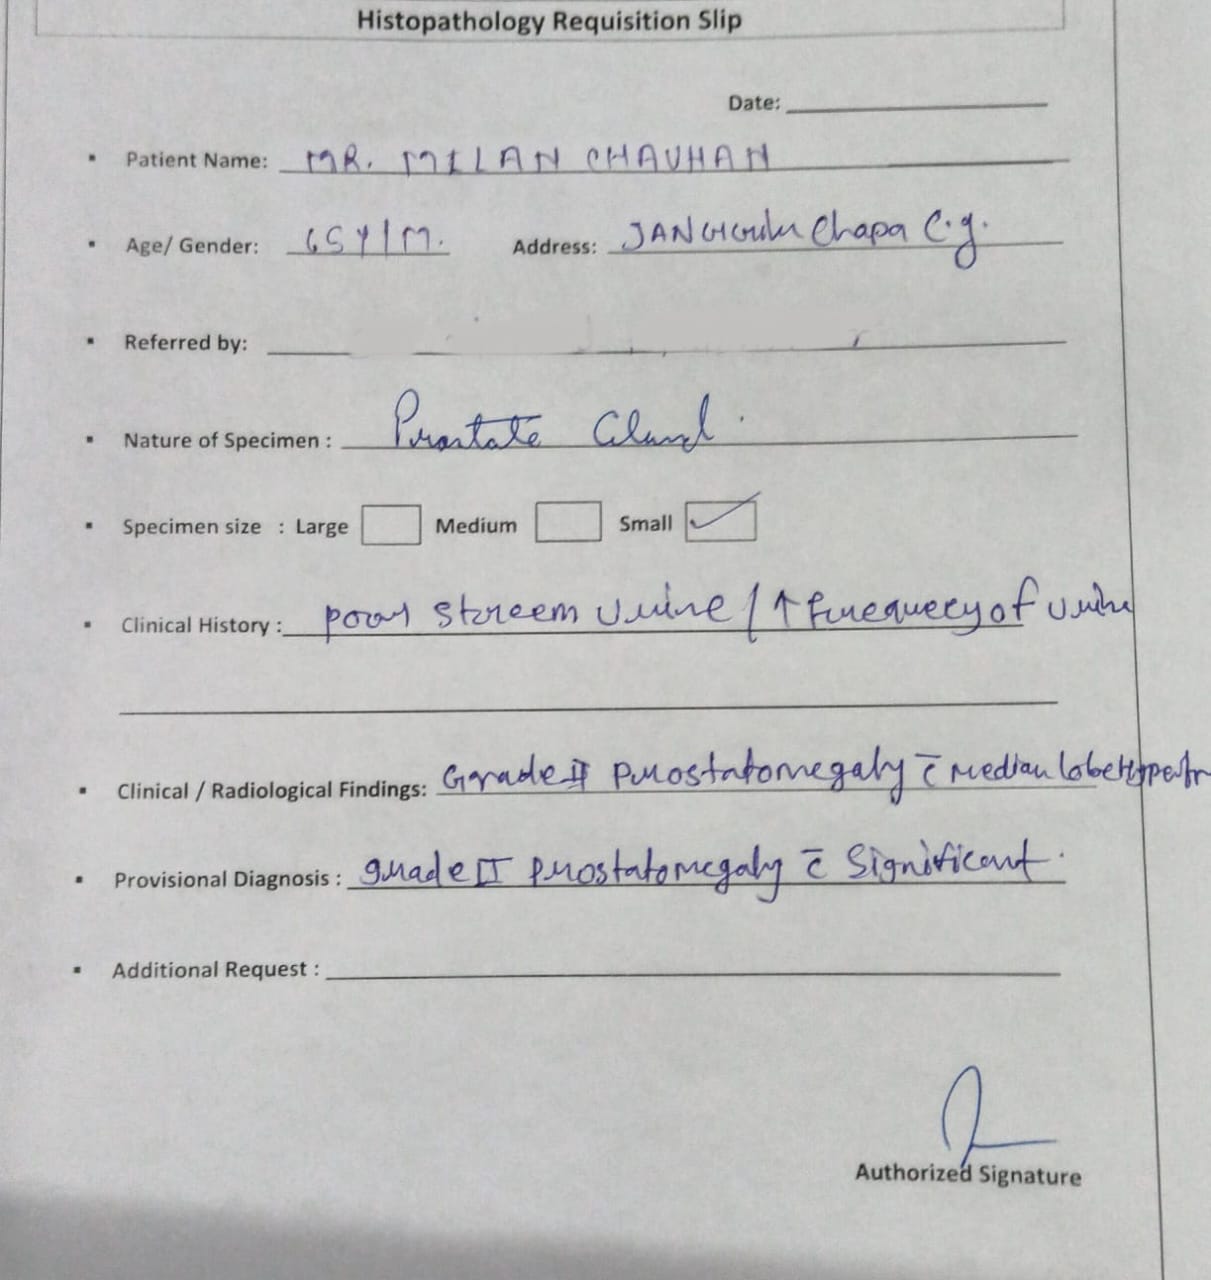 Histopathology Requisition Slip
Date:
Patient Name: MR. MILAN CHAUHAN
Age/ Gender: 65Y/M. Address: Chapa C.g.
Referred by:
Nature of Specimen : Prostate Gland
Specimen size : Large Medium Small
Clinical History : poor streem urine / ↑ frequency of urine
Clinical / Radiological Findings: Grade II prostatomegaly c̄ median lobe
Provisional Diagnosis : grade II prostatomegaly c̄ significant.
Additional Request :
Authorized Signature